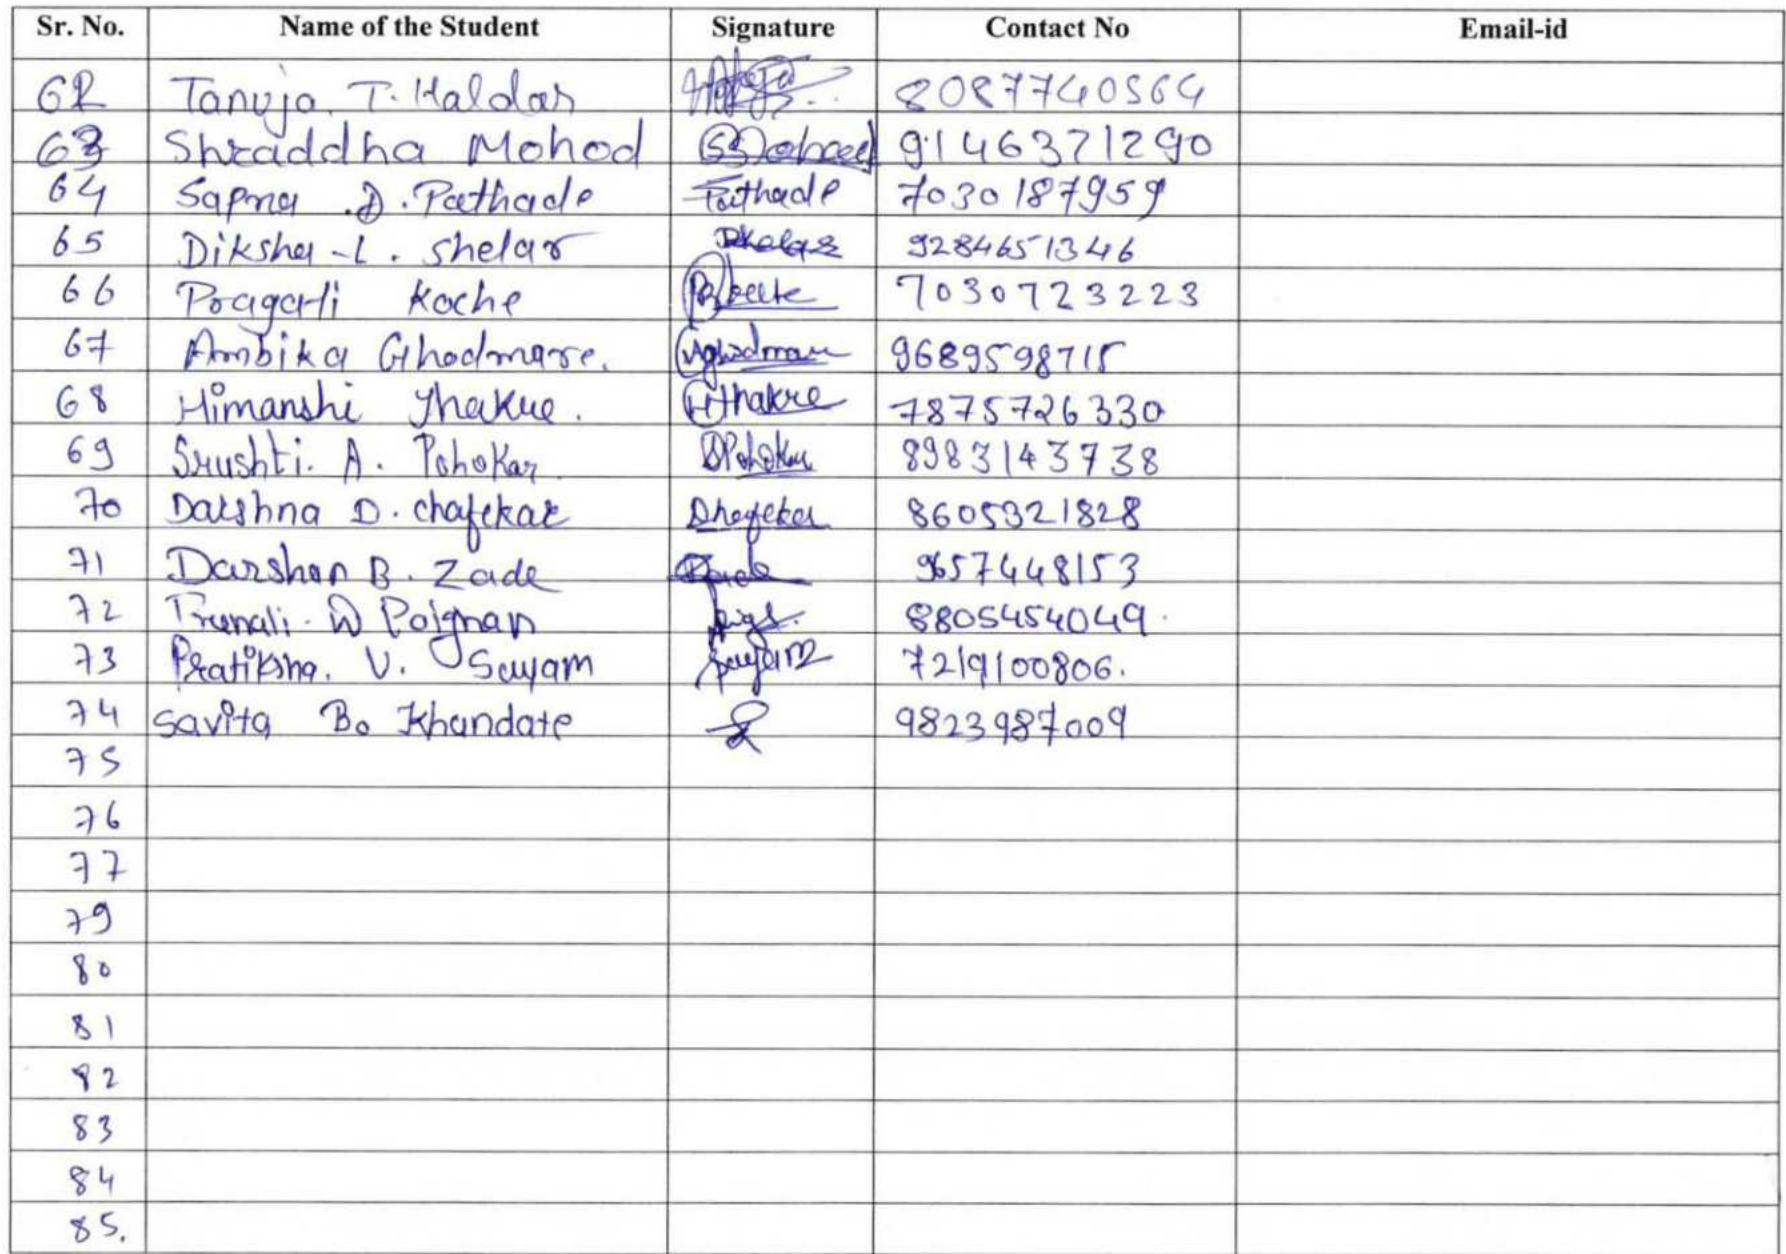 Sr. No. Name of the Student Signature Contact No Email-id
62 Tanuja. T. Haldar 8087740564
63 Shraddha Mohod 9146371290
64 Sapna .D. Pathade Pathade 7030187959
65 Diksha -L. Shelar 9284651346
66 Pragati Koche 7030723223
67 Ambika Ghodmare. 9689598715
68 Himanshi Thakre. HThakre 7875726330
69 Srushti. A. Pohokar 8983143738
70 Darshna D. chafekar 8605321828
71 Darshan B. Zade 9657448153
72 Prunali. W 8805454049.
73 Pratiksha. V. Sayam Sayam 7219100806.
74 Savita B. Khandate 9823987009
75
76
77
79
80
81
82
83
84
85.